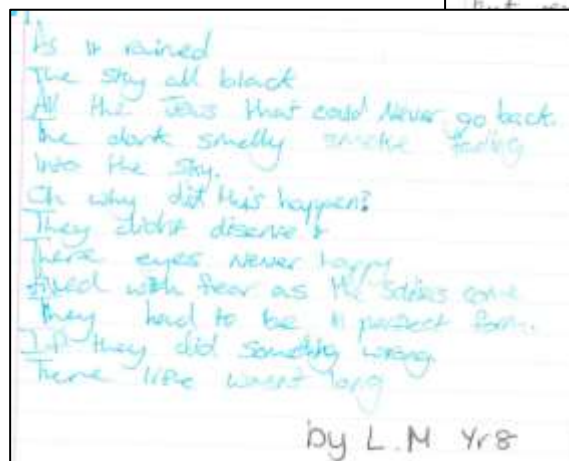 But
As it rained
The sky all black
All the Jews that could Never go back.
The dark smelly smoke fading
Into the sky.
Oh why did this happen?
They didnt diserve it
There eyes Never happy
filled with fear as the soldies come
They had to be in perfect form.
If they did something wrong.
There life wasnt long
by L.M Yr8